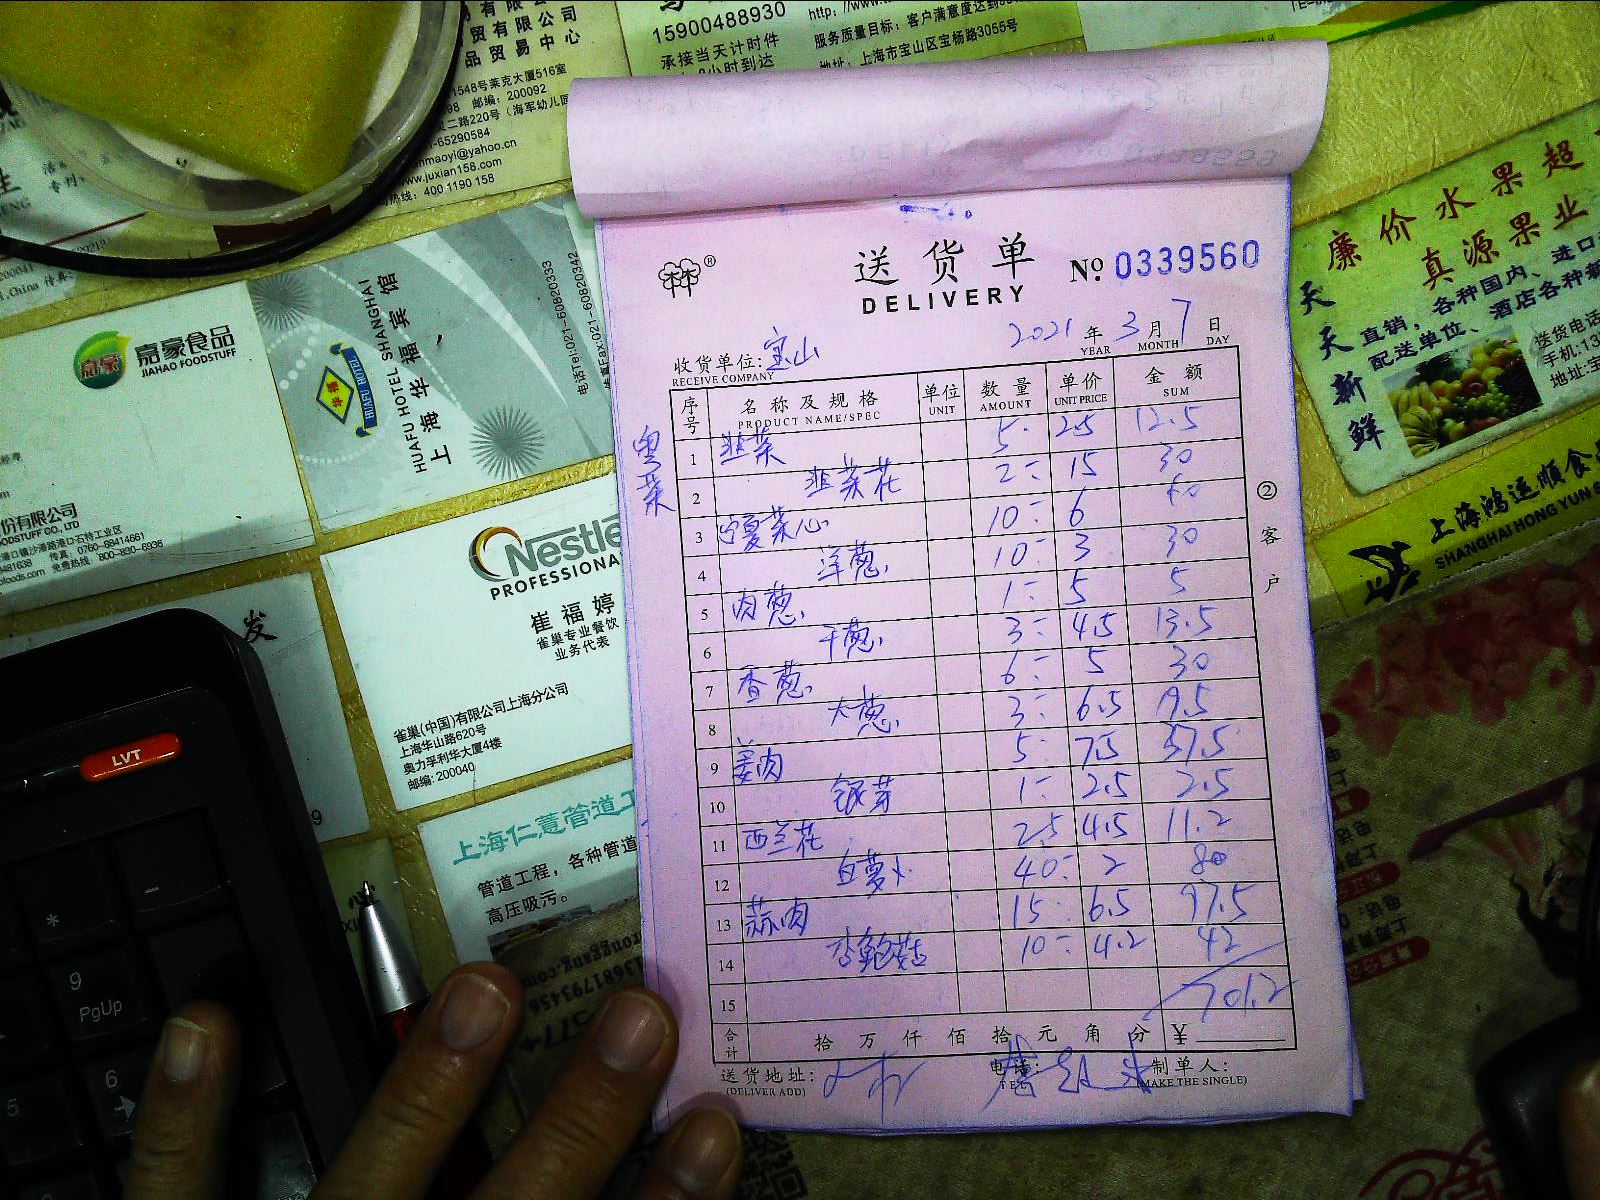 有限公司
贸有限公司
品贸易中心
1548号莱克大厦516室
邮编：200092
二路220号（海军幼儿园
-65290584
nmaoyi@yahoo.cn
www.juxian158.com
热线：400 1190 158
15900488930
承接当天计时件
小时到达
服务质量目标：客户满意度达到
地址：上海市宝山区宝杨路3055号
嘉豪
嘉豪食品
JIAHAO FOODSTUFF
份有限公司
港口镇沙港路港口石特工业区
传真：0760-88414661
免费热线：800-830-6936
HUAFU HOTEL
HUAFU HOTEL SHANGHAI
上海华福宾馆
电话Tel:021-60820333
Fax:021-60820342
Nestle
PROFESSIONA
崔福婷
雀巢专业餐饮
业务代表
雀巢(中国)有限公司上海分公司
上海华山路620号
奥力孚利华大厦4楼
邮编:200040
发
上海仁薏管道工
管道工程，各种管道
高压吸污。
LVT
9
PgUp
6
5
送货单
DELIVERY
No 0339560
2021 年 3 月 7 日
YEAR MONTH DAY
收货单位: 宝山
RECEIVE COMPANY
粤菜
序号 名称及规格 单位 数量 单价 金额
PRODUCT NAME/SPEC UNIT AMOUNT UNIT PRICE SUM
1 韭菜 5- 2.5 12.5
2 韭菜花 2- 15 30
3 宁夏菜心 10- 6 60
4 洋葱 10- 3 30
5 肉葱 1- 5 5
6 干葱 3- 4.5 13.5
7 香葱 6- 5 30
8 大葱 3- 6.5 19.5
9 姜肉 5- 7.5 37.5
10 银芽 1- 2.5 2.5
11 西兰花 2.5 4.5 11.2
12 白萝卜 40- 2 80
13 蒜肉 15- 6.5 97.5
14 杏鲍菇 10- 4.2 42
15 701.2
合计 拾万仟佰拾元角分 ¥
送货地址: 电话: 制单人:
(DELIVER ADD) TEL (MAKE THE SINGLE)
② 客户
廉价水果超
真源果业
天天新鲜
直销，各种国内、进口
配送单位、酒店各种
送货电话
手机:13
地址:宝
上海鸿运顺食品
SHANGHAI HONG YUN S